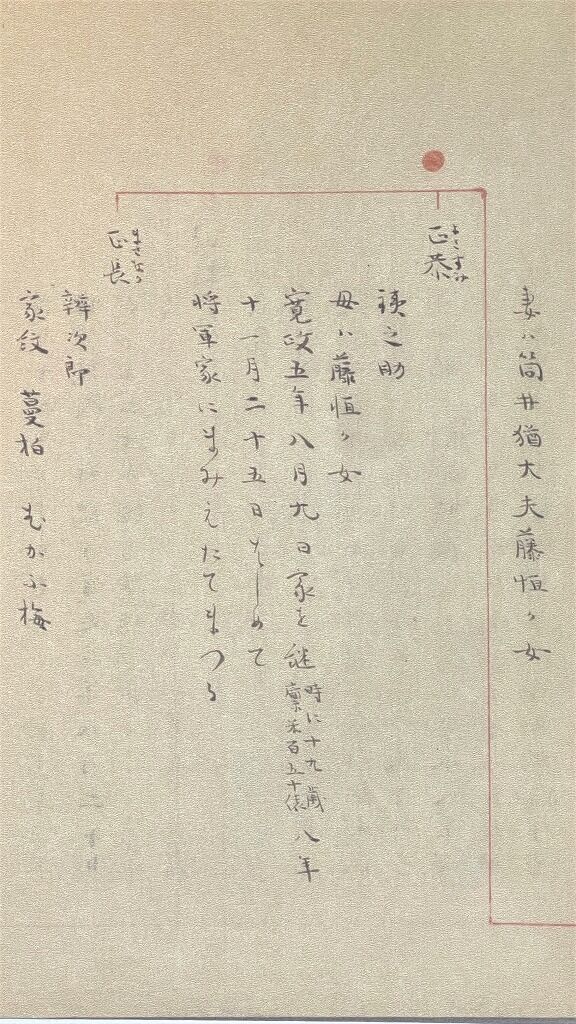 妻ハ筒井猶大夫藤恒カ女
正恭
鋳之助
母ハ藤恒カ女
寛政五年八月九日家を継 時に十九歳 廩米百五十俵 八年
十一月二十五日はしめて
将軍家にまみえたてまつる
正長 まさなか
辨次郎
家紋 蔓柏 むかふ梅